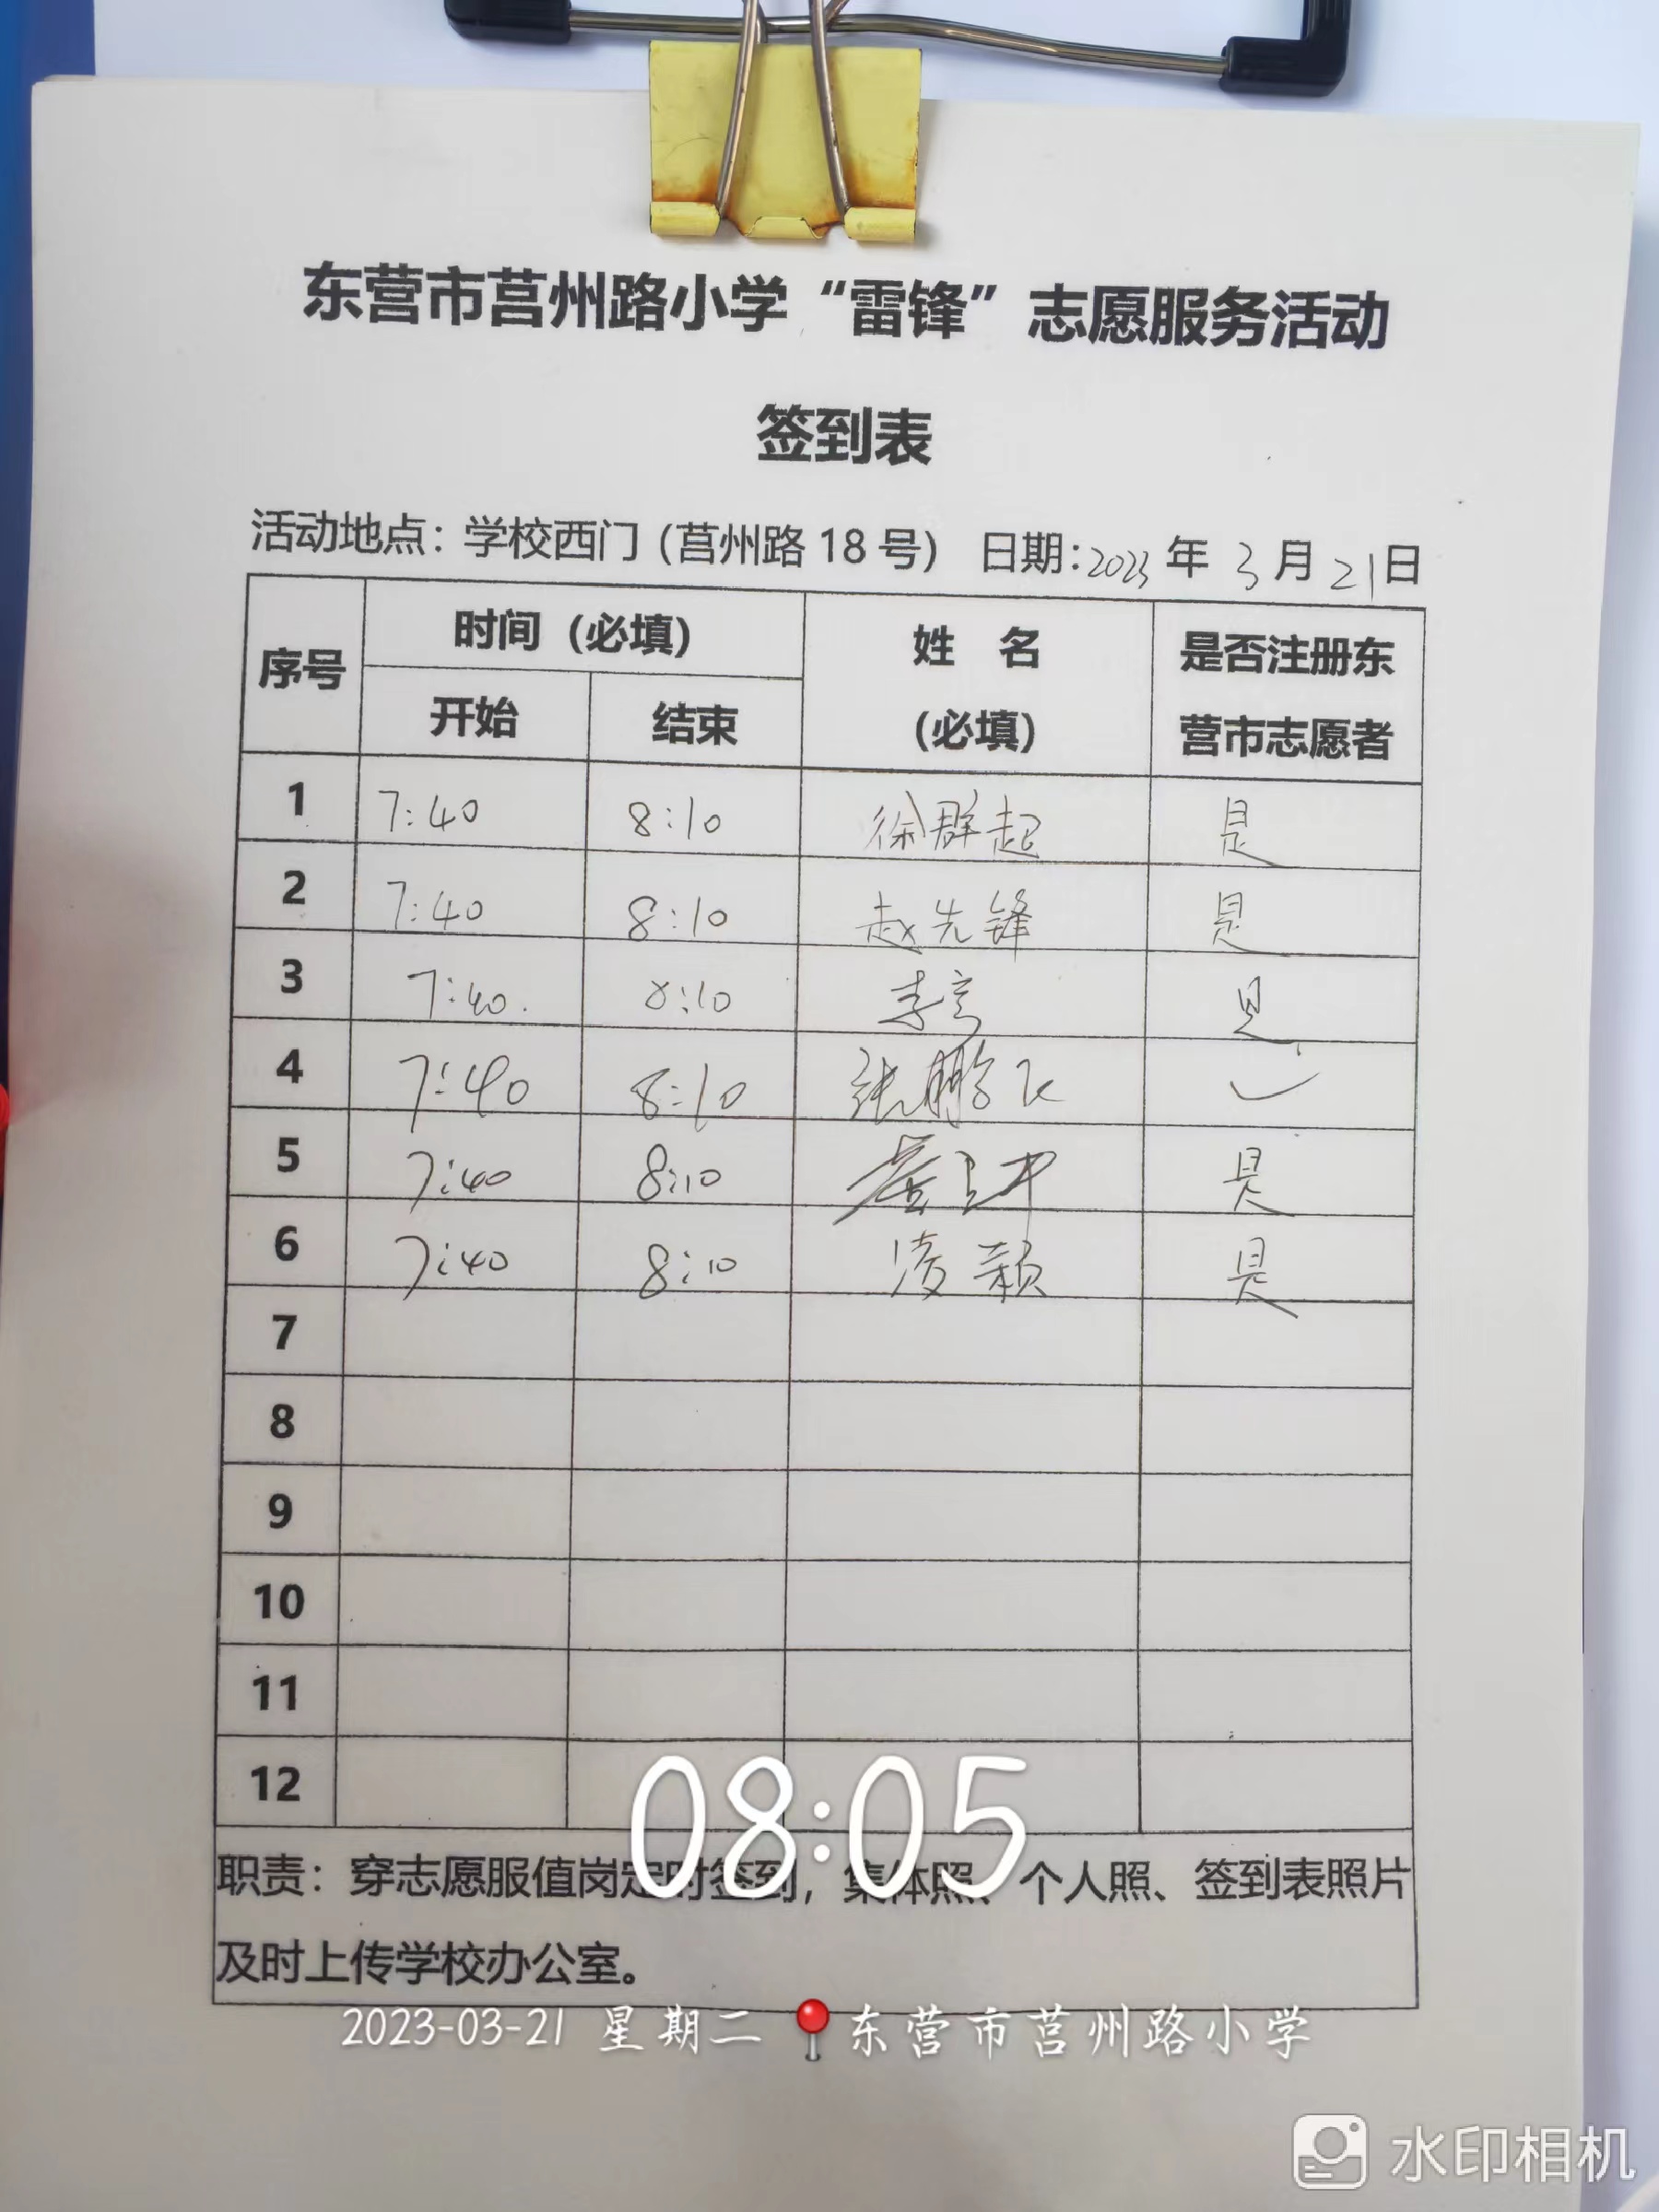 东营市莒州路小学“雷锋”志愿服务活动
签到表
活动地点：学校西门（莒州路 18 号） 日期：2023 年 3 月 21 日
序号 时间（必填） 姓 名 是否注册东
开始 结束 （必填） 营市志愿者
1 7:40 8:10 徐群起 是
2 7:40 8:10 赵先锋 是
3 7:40. 8:10 李亮 是
4 7:40 8:10 张鹏飞 ✓
5 7:40 8:10 是
6 7:40 8:10 凌颖 是
7
8
9
10
11
12
08:05
职责：穿志愿服值岗定时签到，集体照、个人照、签到表照片
及时上传学校办公室。
2023-03-21 星期二 东营市莒州路小学
水印相机